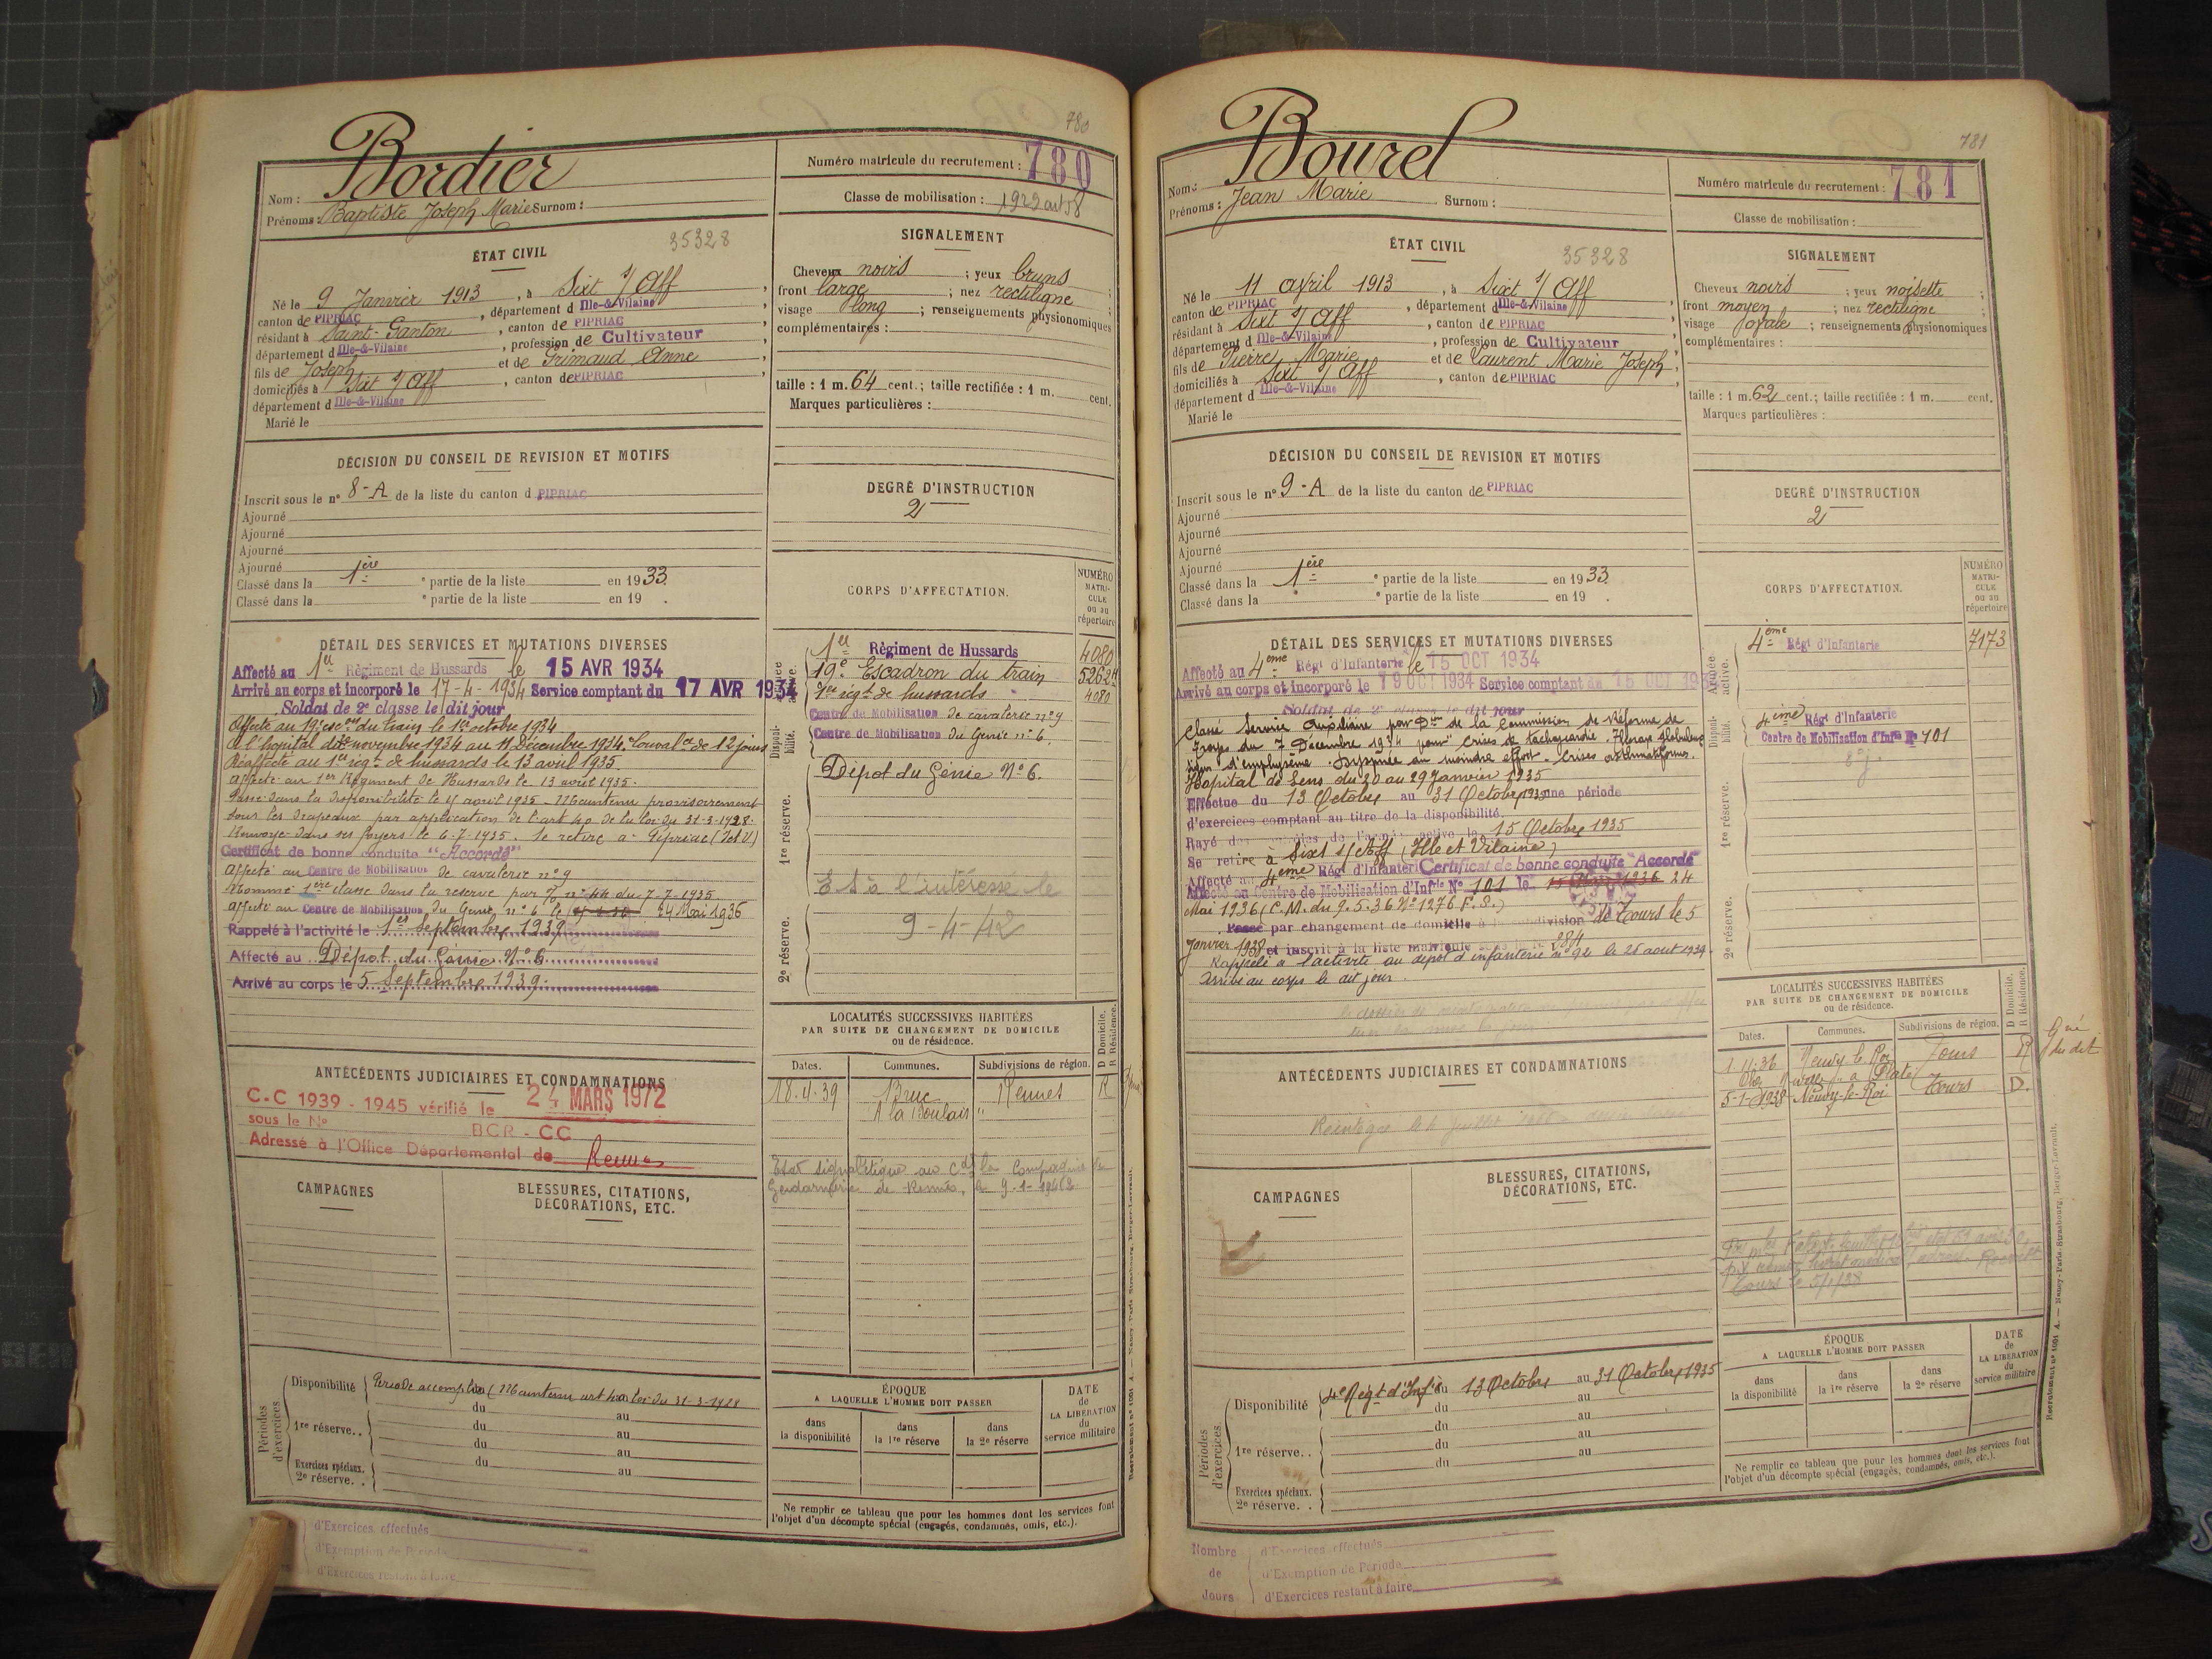 780
Bordier
Nom :
Prénoms : Baptiste Joseph Marie Surnom :
Numéro matricule du recrutement : 780
Classe de mobilisation : 1922 art 58
ÉTAT CIVIL
35328
Né le 9 Janvier 1913, à Sixt s/ Aff,
canton de PIPRIAC, département d Ille-&-Vilaine
résidant à Saint-Ganton, canton de PIPRIAC
département d Ille-&-Vilaine, profession de Cultivateur
fils de Joseph et de Grimaud Anne,
domiciliés à Sixt s/ Aff, canton de PIPRIAC
département d Ille-&-Vilaine
Marié le
SIGNALEMENT
Cheveux noirs ; yeux bruns
front large ; nez rectiligne ;
visage long ; renseignements physionomiques
complémentaires :
taille : 1 m. 64 cent. ; taille rectifiée : 1 m. cent.
Marques particulières :
DÉCISION DU CONSEIL DE REVISION ET MOTIFS
Inscrit sous le n° 8-A de la liste du canton d PIPRIAC
Ajourné
Ajourné
Ajourné
Ajourné
Classé dans la 1ère partie de la liste en 1933.
Classé dans la partie de la liste en 19 .
DEGRÉ D'INSTRUCTION
2
DÉTAIL DES SERVICES ET MUTATIONS DIVERSES
Affecté au 1er Régiment de Hussards le 15 AVR 1934
Arrivé au corps et incorporé le 17-4-1934 Service comptant du 17 AVR 1934
Soldat de 2e classe le dit jour
Affecté au 19e escon du train le 1er octobre 1934
A l'hôpital du novembre 1934 au 11 Décembre 1934. Convalce de 12 jours
Réaffecté au 1er régt de hussards le 13 avril 1935.
Affecté au 1er Régiment de Hussards le 13 avril 1935.
Passé dans la disponibilité le avril 1935 - Maintenu provisoirement
sous les drapeaux par application de l'art 40 de la loi du 31-3-1928.
Renvoyé dans ses foyers le 6-7-1935. Se retire à Pipriac (I et V)
Certificat de bonne conduite "Accordé"
Affecté au Centre de Mobilisation de cavalerie n° 9
Nommé 1ère classe dans la réserve par n° 44 du 7-7-1935
Affecté au Centre de Mobilisation du Génie n° 6 le 24 Mai 1936
Rappelé à l'activité le 1er Septembre 1939
Affecté au Dépôt du Génie N° 6
Arrivé au corps le 5 Septembre 1939.
CORPS D'AFFECTATION.
NUMÉRO MATRICULE ou au répertoire
Armée active.
1er Régiment de Hussards 4080
19e Escadron du train 5262
1er régt de hussards 4080
Disponibilité.
Centre de Mobilisation de cavalerie n° 9
Centre de Mobilisation du Génie n° 6.
1re réserve.
Dépôt du Génie N° 6.
E S à l'intéressé le
9-4-42
2e réserve.
LOCALITÉS SUCCESSIVES HABITÉES
PAR SUITE DE CHANGEMENT DE DOMICILE
ou de résidence.
Dates. Communes. Subdivisions de région. D Domicile. R Résidence.
18.4.39 Bruc Rennes R
A la Boulais "
Etat signalétique au Cdt la Compagnie de
Gendarmerie de Rennes,
ANTÉCÉDENTS JUDICIAIRES ET CONDAMNATIONS
C.C 1939 - 1945 vérifié le 24 MARS 1972
sous le N° BCR - CC
Adressé à l'Office Départemental de Rennes
CAMPAGNES
BLESSURES, CITATIONS,
DÉCORATIONS, ETC.
Périodes d'exercices
Disponibilité Période accomplie (Maintenu art 40 loi du 31-3-1928
du au
1re réserve. . du au
du au
Exercices spéciaux. du au
2e réserve. .
ÉPOQUE
A LAQUELLE L'HOMME DOIT PASSER
dans la disponibilité
dans la 1re réserve
dans la 2e réserve
DATE de LA LIBÉRATION du service militaire
Ne remplir ce tableau que pour les hommes dont les services font
l'objet d'un décompte spécial (engagés, condamnés, omis, etc.).
d'Exercices effectués
d'Exemption de Période
d'Exercices restant à faire
781
Bourel
Nom :
Prénoms : Jean Marie Surnom :
Numéro matricule du recrutement : 781
Classe de mobilisation :
ÉTAT CIVIL
35328
Né le 11 avril 1913, à Sixt s/ Aff
canton de PIPRIAC, département d Ille-&-Vilaine
résidant à Sixt s/ Aff, canton de PIPRIAC
département d Ille-&-Vilaine, profession de Cultivateur
fils de Pierre Marie et de Laurent Marie Joseph,
domiciliés à Sixt s/ Aff, canton de PIPRIAC
département d Ille-&-Vilaine
Marié le
SIGNALEMENT
Cheveux noirs ; yeux noisette
front moyen ; nez rectiligne ;
visage ovale ; renseignements physionomiques
complémentaires :
taille : 1 m. 62 cent. ; taille rectifiée : 1 m. cent.
Marques particulières :
DÉCISION DU CONSEIL DE REVISION ET MOTIFS
Inscrit sous le n° 9-A de la liste du canton de PIPRIAC
Ajourné
Ajourné
Ajourné
Ajourné
Classé dans la 1ère partie de la liste en 1933.
Classé dans la partie de la liste en 19 .
DEGRÉ D'INSTRUCTION
2
DÉTAIL DES SERVICES ET MUTATIONS DIVERSES
Affecté au 4ème Régt d'Infanterie le 15 OCT 1934
Arrivé au corps et incorporé le 19 OCT 1934 Service comptant du 15 OCT 1934
Soldat de 2e classe le dit jour
Classé Service Auxiliaire par Don de la Commission de Réforme de
Troyes du 7 Décembre 1934 pour "Crises de tachycardie. Thorax globuleux
signes d'emphysème. Dyspnée au moindre effort. Crises asthmatiformes.
Hôpital de Sens du 20 au 29 Janvier 1935
Effectue du 13 Octobre au 31 Octobre 1935 une période
d'exercices comptant au titre de la disponibilité.
Rayé des contrôles de l'armée active le 15 Octobre 1935
Se retire à Sixt s/ Aff (Ille et Vilaine)
Affecté au 4ème Rég d'Infanterie Certificat de bonne conduite "Accordé"
Affecté au Centre de Mobilisation d'Infrie N° 101 le 24
Mai 1936 (C.M. du 9.5.36 N° 1276 F.S.)
Passé par changement de domicile à la subdivision de Tours le 5
Janvier 1938 et inscrit à la liste matricule sous le n° 2884
Rappelé à l'activité au dépôt d'infanterie n° 92 le 25 août 1939.
Arrivé au corps le dit jour.
CORPS D'AFFECTATION.
NUMÉRO MATRICULE ou au répertoire
Armée active.
4ème Régt d'Infanterie 7173
Disponibilité.
4ème Régt d'Infanterie
Centre de Mobilisation d'Infie N° 101
1re réserve.
2e réserve.
LOCALITÉS SUCCESSIVES HABITÉES
PAR SUITE DE CHANGEMENT DE DOMICILE
ou de résidence.
Dates. Communes. Subdivisions de région. D Domicile. R Résidence.
1.11.36 Neuvy le Roi Tours R
5-1-1938 Neuvy-le-Roi Tours D.
ANTÉCÉDENTS JUDICIAIRES ET CONDAMNATIONS
CAMPAGNES
BLESSURES, CITATIONS,
DÉCORATIONS, ETC.
Tours le 5/1/38
Périodes d'exercices
Disponibilité 4e Régt d'Infie du 13 Octobre au 31 Octobre 1935
du au
du au
1re réserve. . du au
du au
Exercices spéciaux.
2e réserve. .
ÉPOQUE
A LAQUELLE L'HOMME DOIT PASSER
dans la disponibilité
dans la 1re réserve
dans la 2e réserve
DATE de LA LIBÉRATION du service militaire
Ne remplir ce tableau que pour les hommes dont les services font
l'objet d'un décompte spécial (engagés, condamnés, omis, etc.).
Nombre de Jours
d'Exercices effectués
d'Exemption de Période
d'Exercices restant à faire